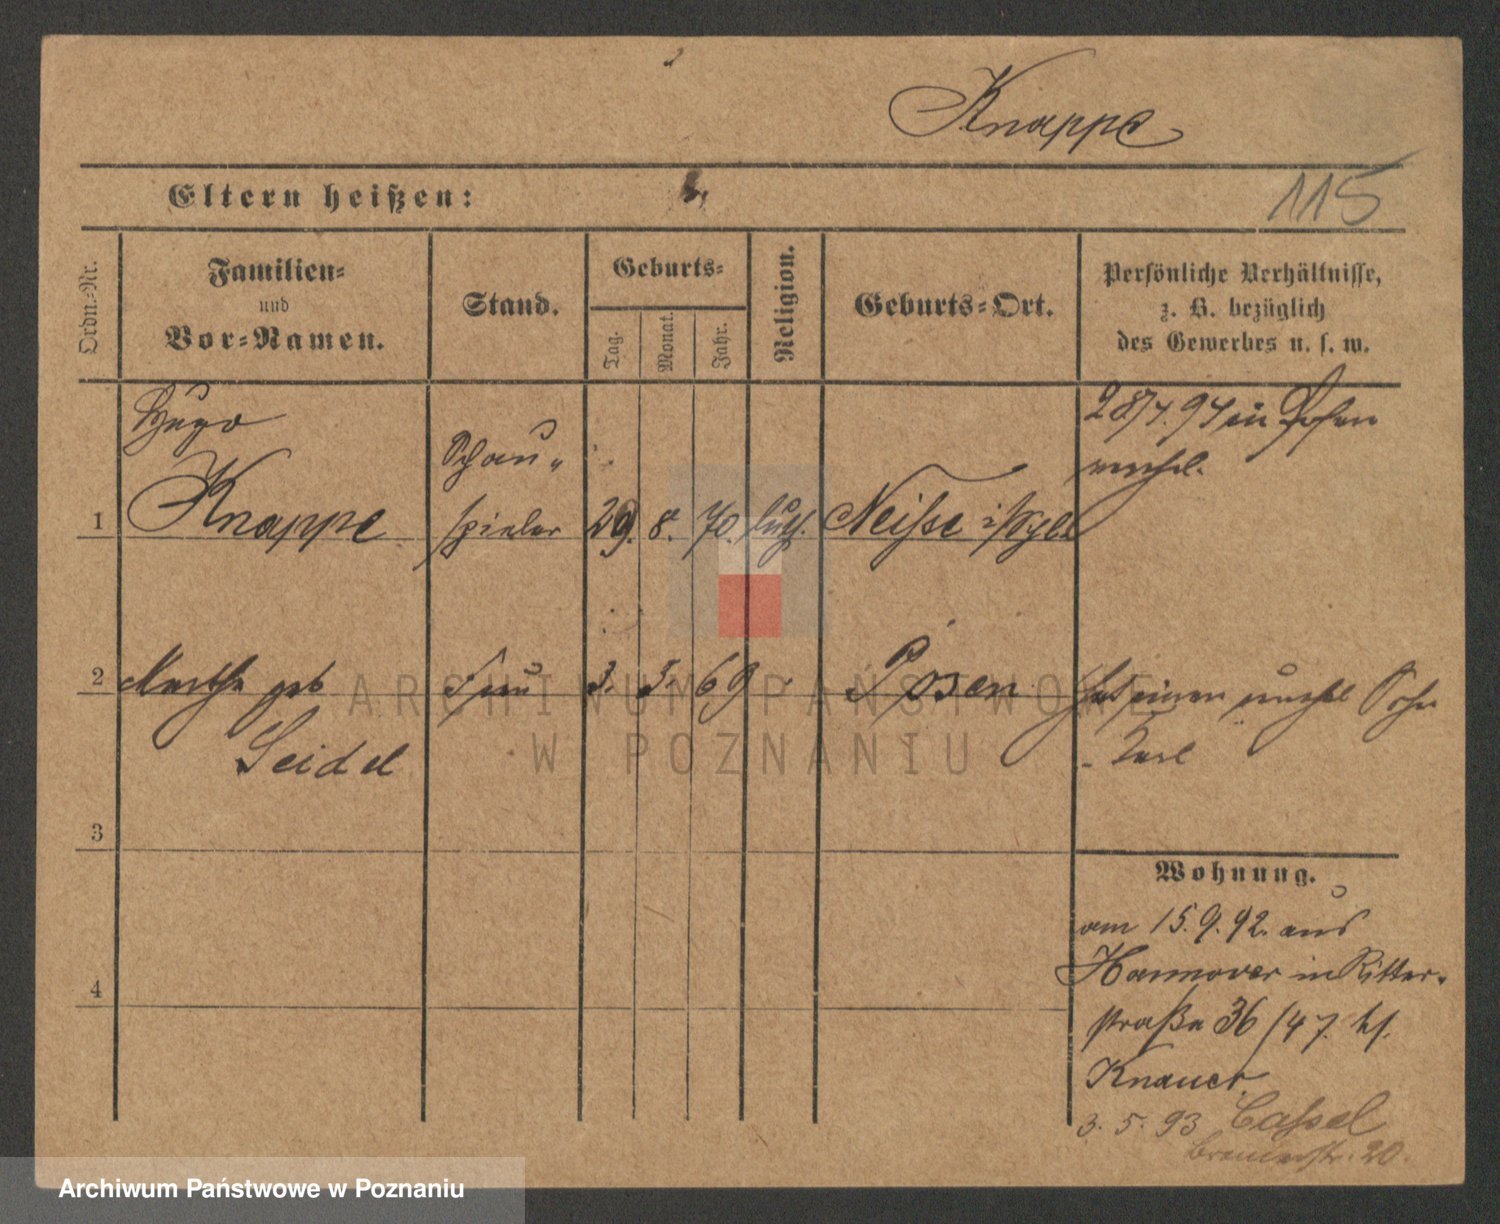 Knappe
115
Eltern heißen:
Ordn.=Nr.
Familien=
und
Vor=Namen.
Stand.
Geburts=
Tag.
Monat.
Jahr.
Religion.
Geburts=Ort.
Persönliche Verhältnisse,
z. B. bezüglich
des Gewerbes u. s. w.
Hugo
Knappe
Schau=
1 spieler 29. 8. 70. luth. Neisse
28/7. 94 in Posen
2 Martha geb Frau 3. 3. 69 Posen
Seidel
hat einen unehel Sohn
Karl
3
4
Wohnung.
am 15. 9. 92. aus
Hannover in Ritter=
straße 36/47. bf.
Knauer
3. 5. 93 Cassel
20.
ARCHIWUM PAŃSTWOWE
W POZNANIU
Archiwum Państwowe w Poznaniu